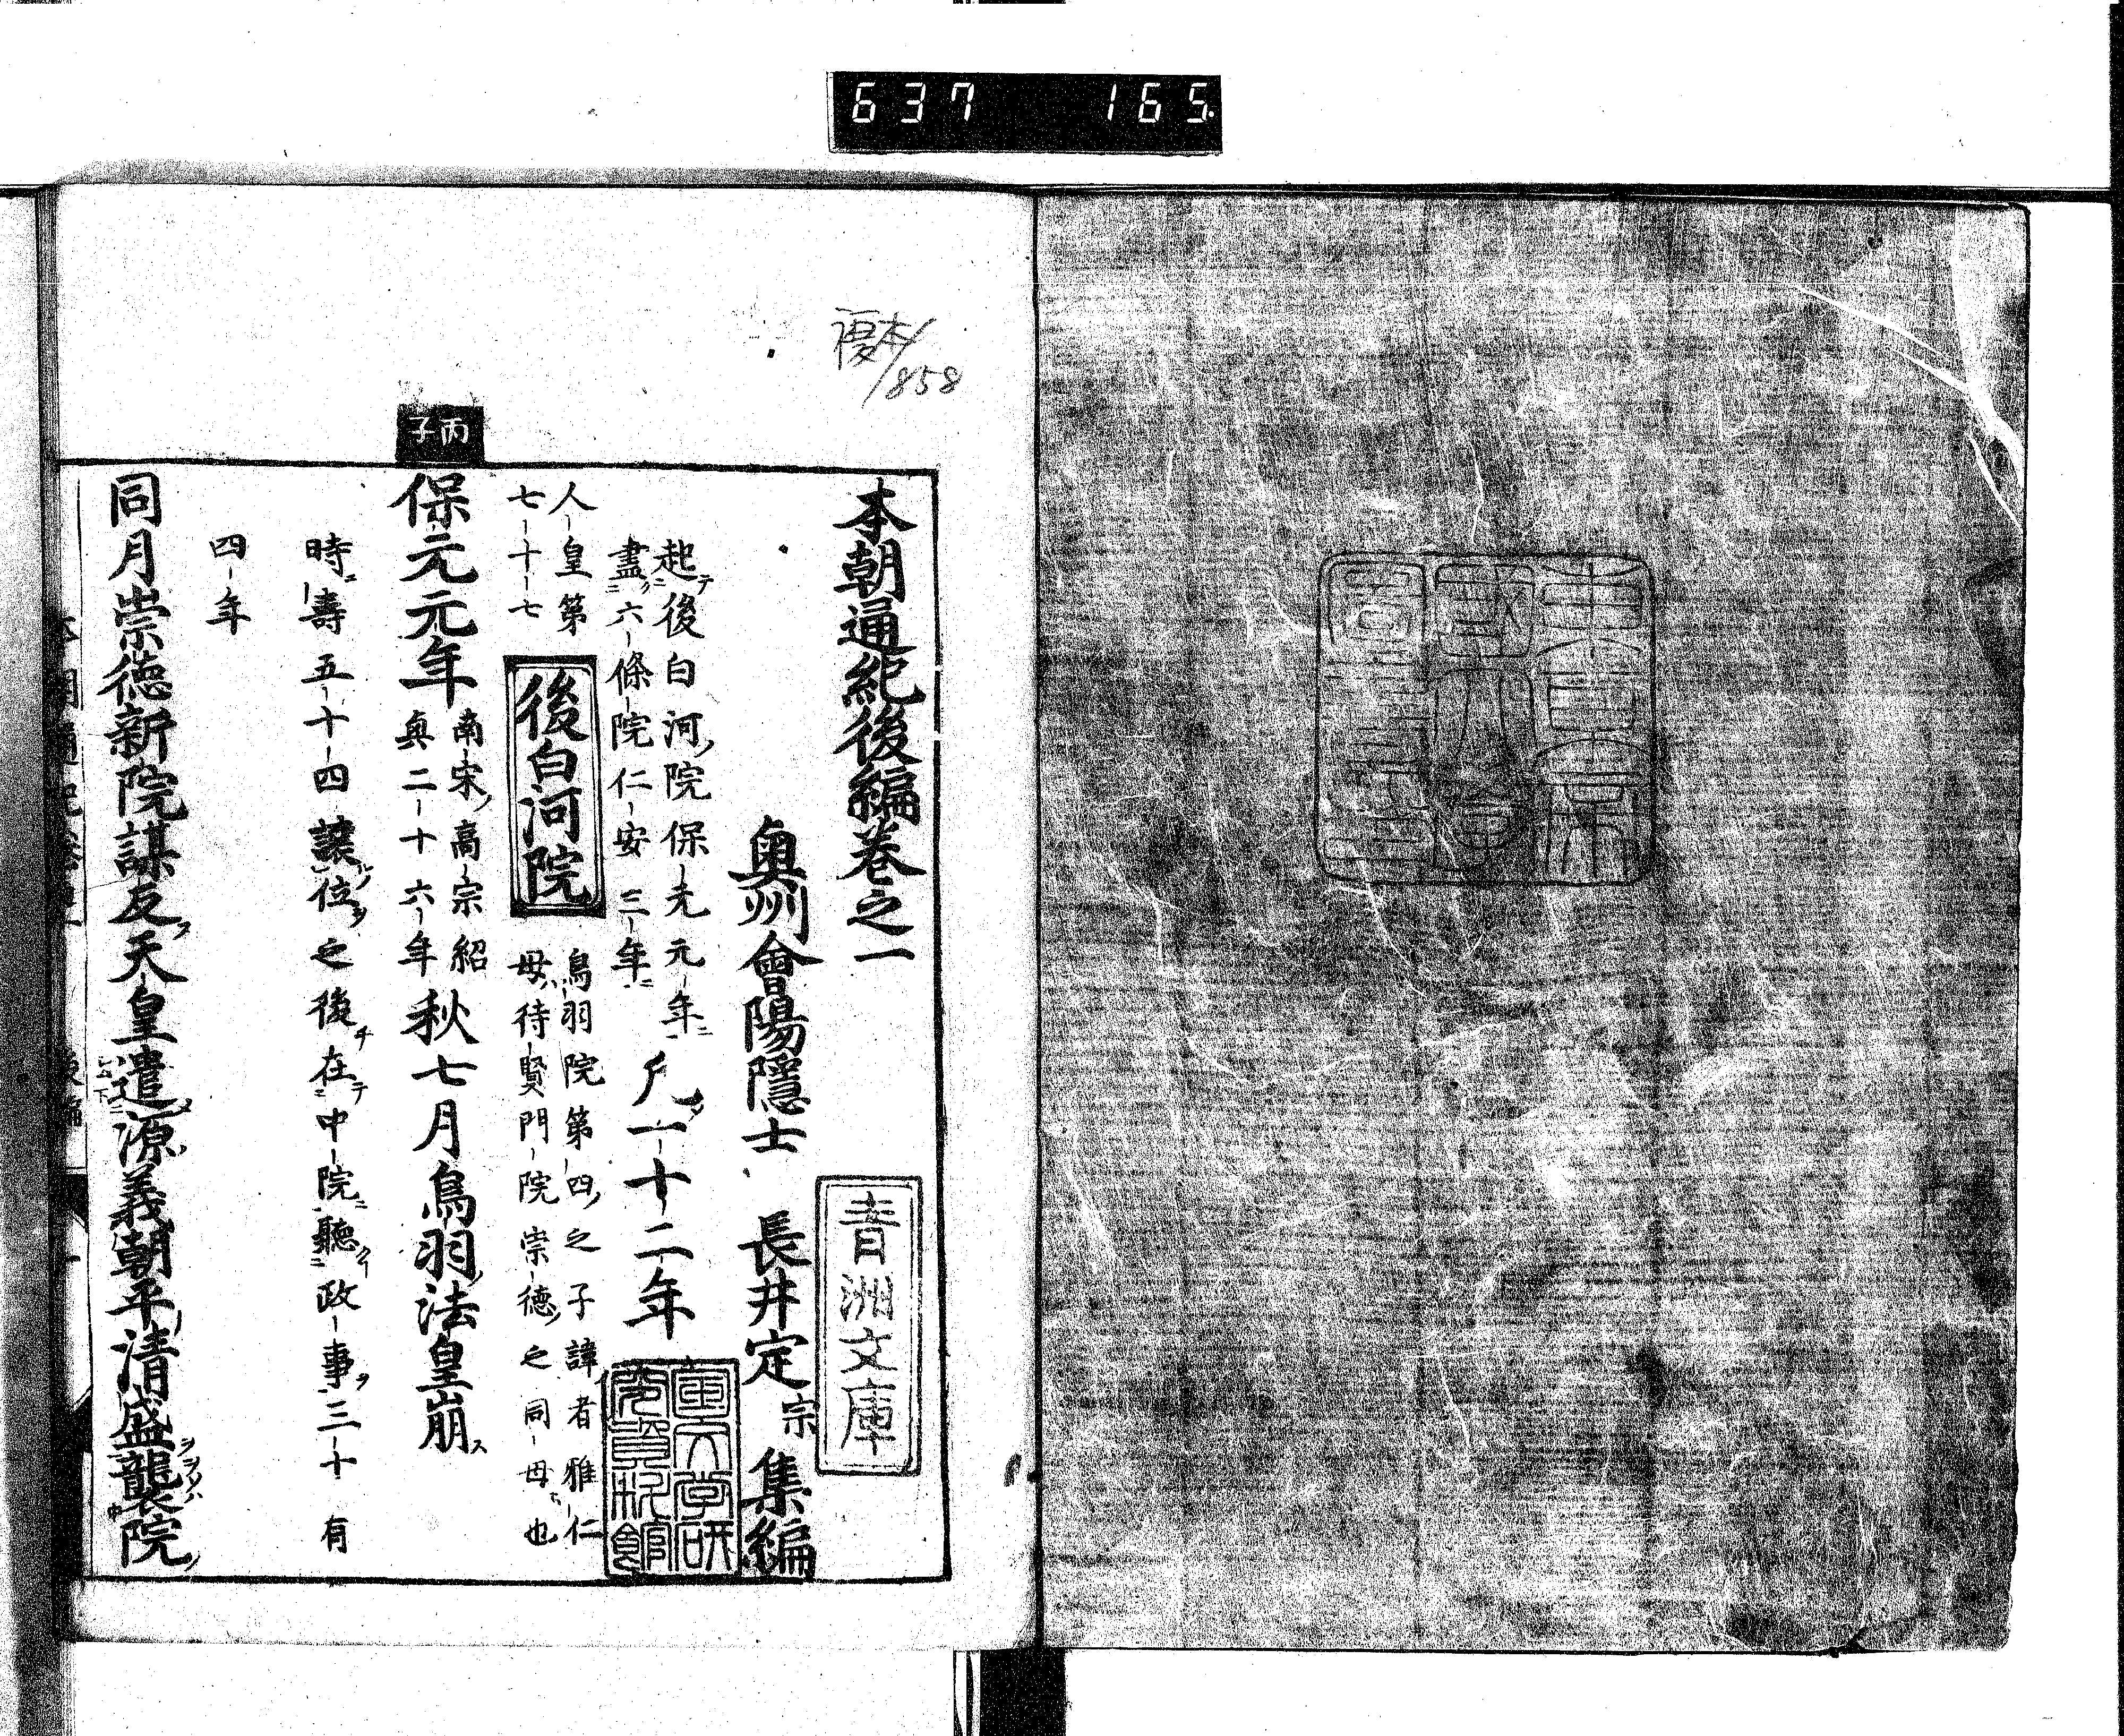 637 165
複本/858
本朝通紀後編巻之一
奥州會陽隱士 長井定宗 集編
青洲文庫
起テ後白河ノ院保元元年ニ
盡ク六條院仁安三年ニ
凡一十二年
人皇第
七十七
後白河院
鳥羽院第四ノ之子諱者雅仁
母ハ待賢門院崇德ノ之同母也
丙子
保元元年
南宋ノ高宗紹
興二十六年
秋七月鳥羽ノ法皇崩ス
時ニ壽五十四讓位ヲ之後在テ中院ニ聽政事ヲ三十有
四年
同月崇徳新院謀反ス天皇遣源ノ義朝平ノ清盛襲院ノ
國文学研究資料館